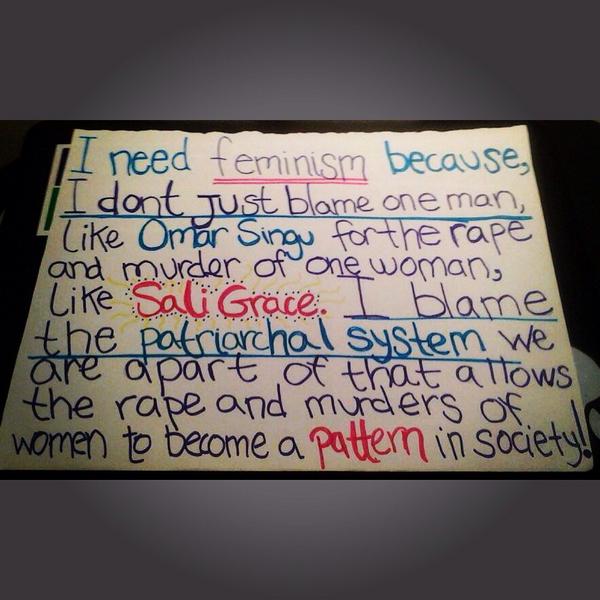 I need feminism because,
I dont just blame one man,
like Omar Singu for the rape
and murder of one woman,
like Sali Grace. I blame
the patriarchal system we
are apart of that allows
the rape and murders of
women to become a pattern in society!